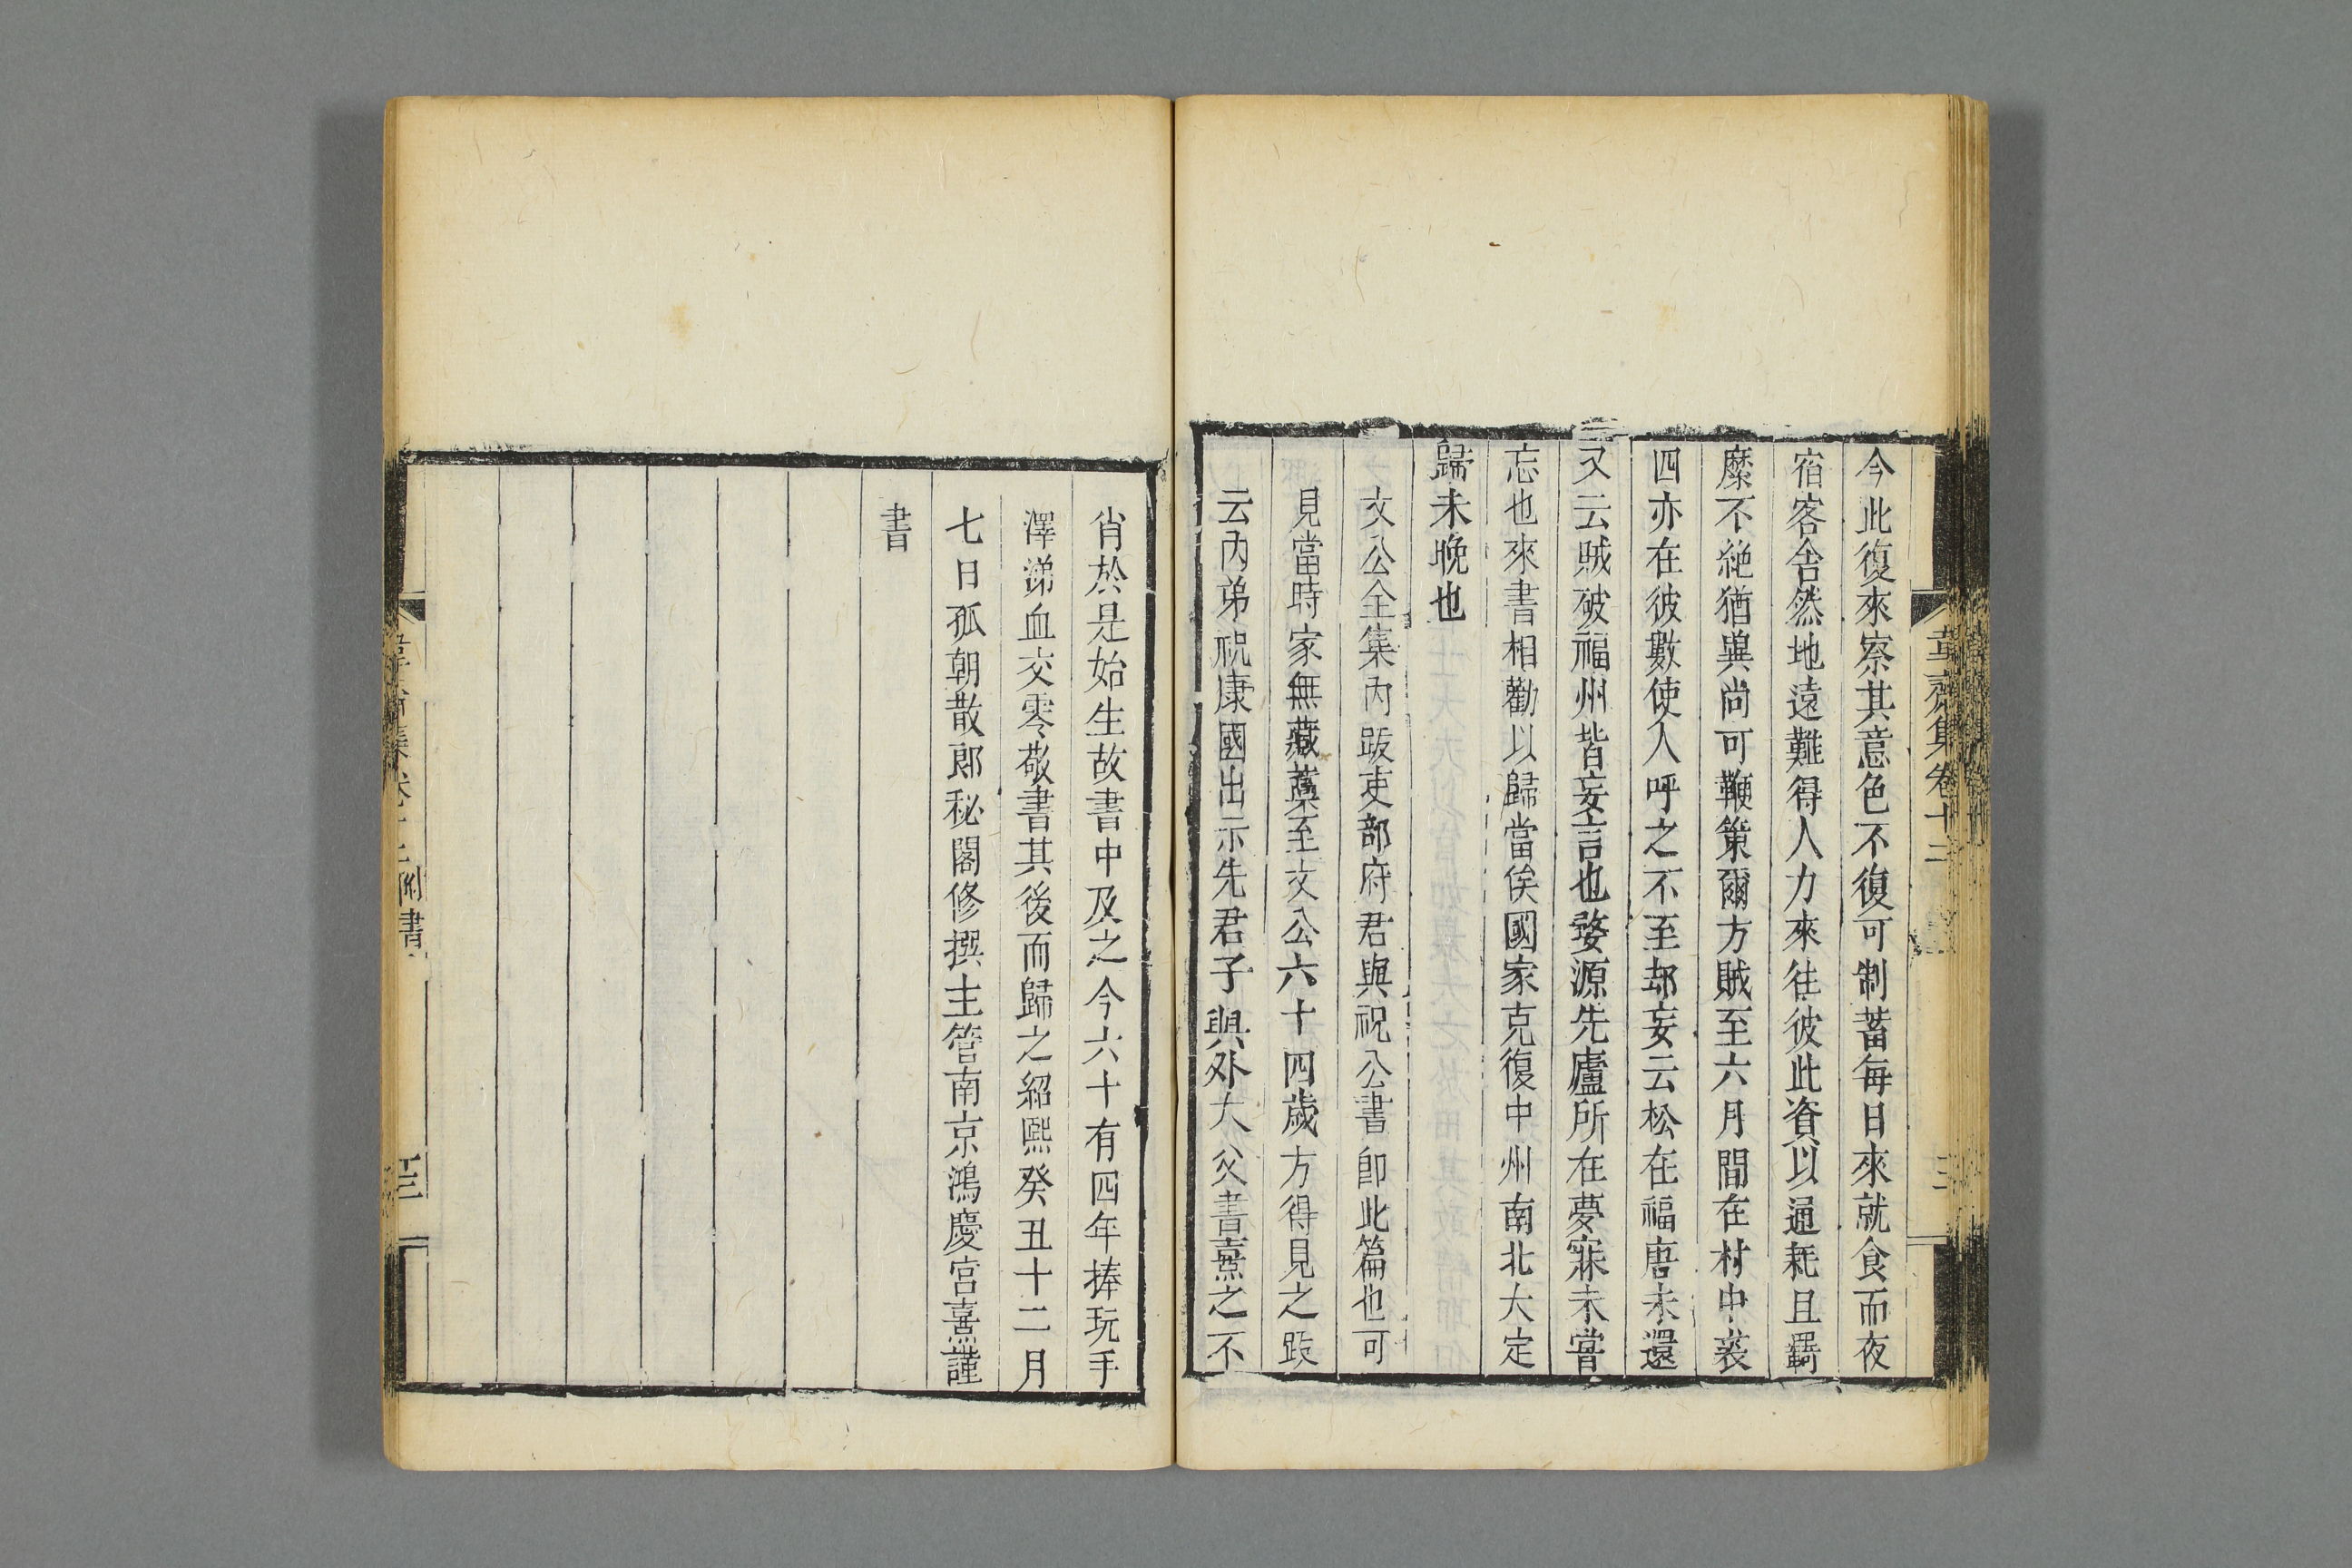 今此復來察其意色不復可制蓄每日來就食而夜
宿客舍然地遠難得人力來往彼此資以通耗且羈
縻不絶猶與尚可鞭策爾方賊至六月間在村中裘
四亦在彼數使人呼之不至却妄云松在福唐未還
又云賊破福州皆妄言也婺源先廬所在夢寐未嘗
忘也來書相勸以歸當俟國家克復中州南北大定
歸未晚也
文公全集內跋吏部府君與祝公書卽此篇也可
見當時家無藏藁至文公六十四歲方得見之跋
云內弟祝康國出示先君子與外大父書熹之不
韋齋集卷十二
肖於是始生故書中及之今六十有四年捧玩手
澤涕血交零敬書其後而歸之紹熙癸丑十二月
七日孤朝散郎秘閣修撰主管南京鴻慶宮熹謹
書
附書